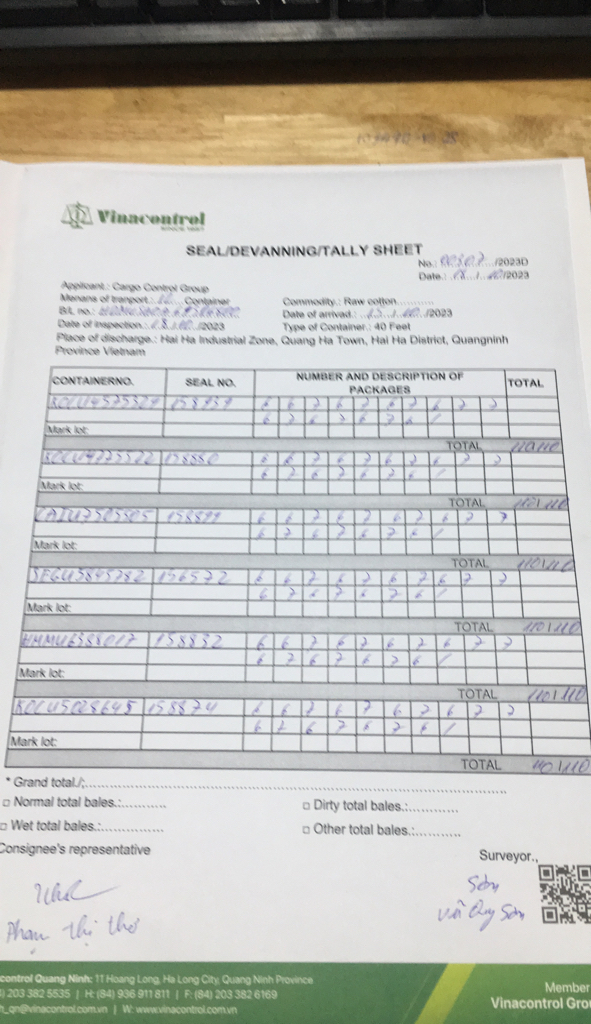 Vinacontrol
SEAL/DEVANNING/TALLY SHEET
No.: /2023D
Date.: 18/10/2023
Applicant.: Cargo Control Group
Menans of tranport.: Container
Commodity.: Raw cotton
B/L no.:
Date of arrived.: 15/10/2023
Date of inspection.: 18/10/2023
Type of Container.: 40 Feet
Place of discharge.: Hai Ha Industrial Zone, Quang Ha Town, Hai Ha District, Quangninh
Province Vietnam
CONTAINERNO. SEAL NO. NUMBER AND DESCRIPTION OF PACKAGES TOTAL
158939 6 6 7 6 7 6 7 6 7 7
6 7 6 7 6 7 6 /
Mark lot:
TOTAL 110/110
158880 6 6 7 6 7 6 7 6 7 7
6 7 6 7 6 7 6 /
Mark lot:
TOTAL 110/110
158899 6 6 7 6 7 6 7 6 7 7
6 7 6 7 6 7 6 /
Mark lot:
TOTAL 110/110
SEGU5845782 156572 6 6 7 6 7 6 7 6 7 7
6 7 6 7 6 7 6 /
Mark lot:
TOTAL 110/110
HMMU6388017 158832 6 6 7 6 7 6 7 6 7 7
6 7 6 7 6 7 6 /
Mark lot:
TOTAL 110/110
158874 6 6 7 6 7 6 7 6 7 7
6 7 6 7 6 7 6 /
Mark lot:
TOTAL 110/110
* Grand total./:
□ Normal total bales.: □ Dirty total bales.:
□ Wet total bales.: □ Other total bales.:
Consignee's representative
Surveyor.,
Sơn
Phạm Thị Thơ
Vũ Quý Sơn
control Quang Ninh: 11 Hoang Long, Ha Long City, Quang Ninh Province
203 382 5535 | H: (84) 936 911 811 | F: (84) 203 382 6169
h_qn@vinacontrol.com.vn | W: www.vinacontrol.com.vn
Member
Vinacontrol Gro